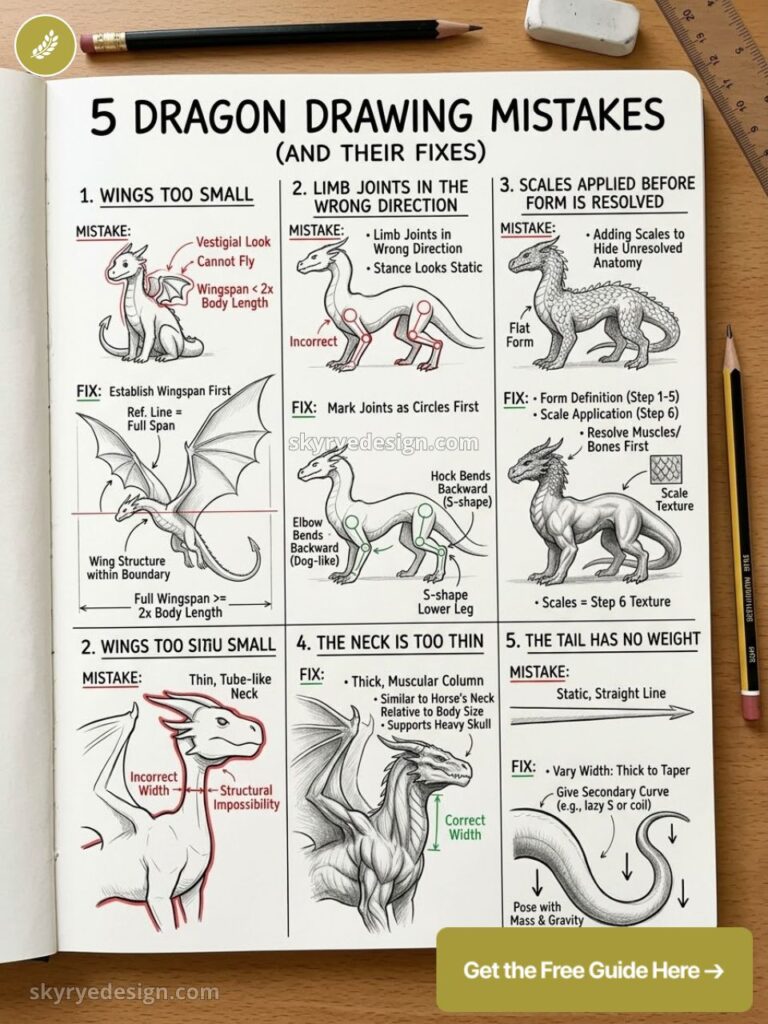 5 DRAGON DRAWING MISTAKES
(AND THEIR FIXES)
1. WINGS TOO SMALL
MISTAKE:
Vestigial Look
Cannot Fly
Wingspan < 2x
Body Length
FIX: Establish Wingspan First
Ref. Line =
Full Span
Wing Structure
within Boundary
Full Wingspan >=
2x Body Length
2. LIMB JOINTS IN THE
WRONG DIRECTION
MISTAKE:
• Limb Joints in
Wrong Direction
• Stance Looks Static
Incorrect
FIX: Mark Joints as Circles First
skyryedesign.com
Hock Bends
Backward
(S-shape)
Elbow
Bends
Backward
(Dog-like)
S-shape
Lower Leg
3. SCALES APPLIED BEFORE
FORM IS RESOLVED
MISTAKE:
• Adding Scales to
Hide Unresolved
Anatomy
Flat
Form
FIX: • Form Definition (Step 1-5)
• Scale Application (Step 6)
• Resolve Muscles/
Bones First
Scale
Texture
• Scales = Step 6 Texture
2. WINGS TOO SMALL
MISTAKE:
Thin, Tube-like
Neck
Incorrect
Width
Structural
Impossibility
4. THE NECK IS TOO THIN
FIX:
• Thick, Muscular Column
• Similar to Horse's Neck
Relative to Body Size
• Supports Heavy Skull
Correct
Width
5. THE TAIL HAS NO WEIGHT
MISTAKE:
Static, Straight Line
FIX: • Vary Width: Thick to Taper
• Give Secondary Curve
(e.g., lazy S or coil)
Pose with
Mass & Gravity
Get the Free Guide Here →
skyryedesign.com